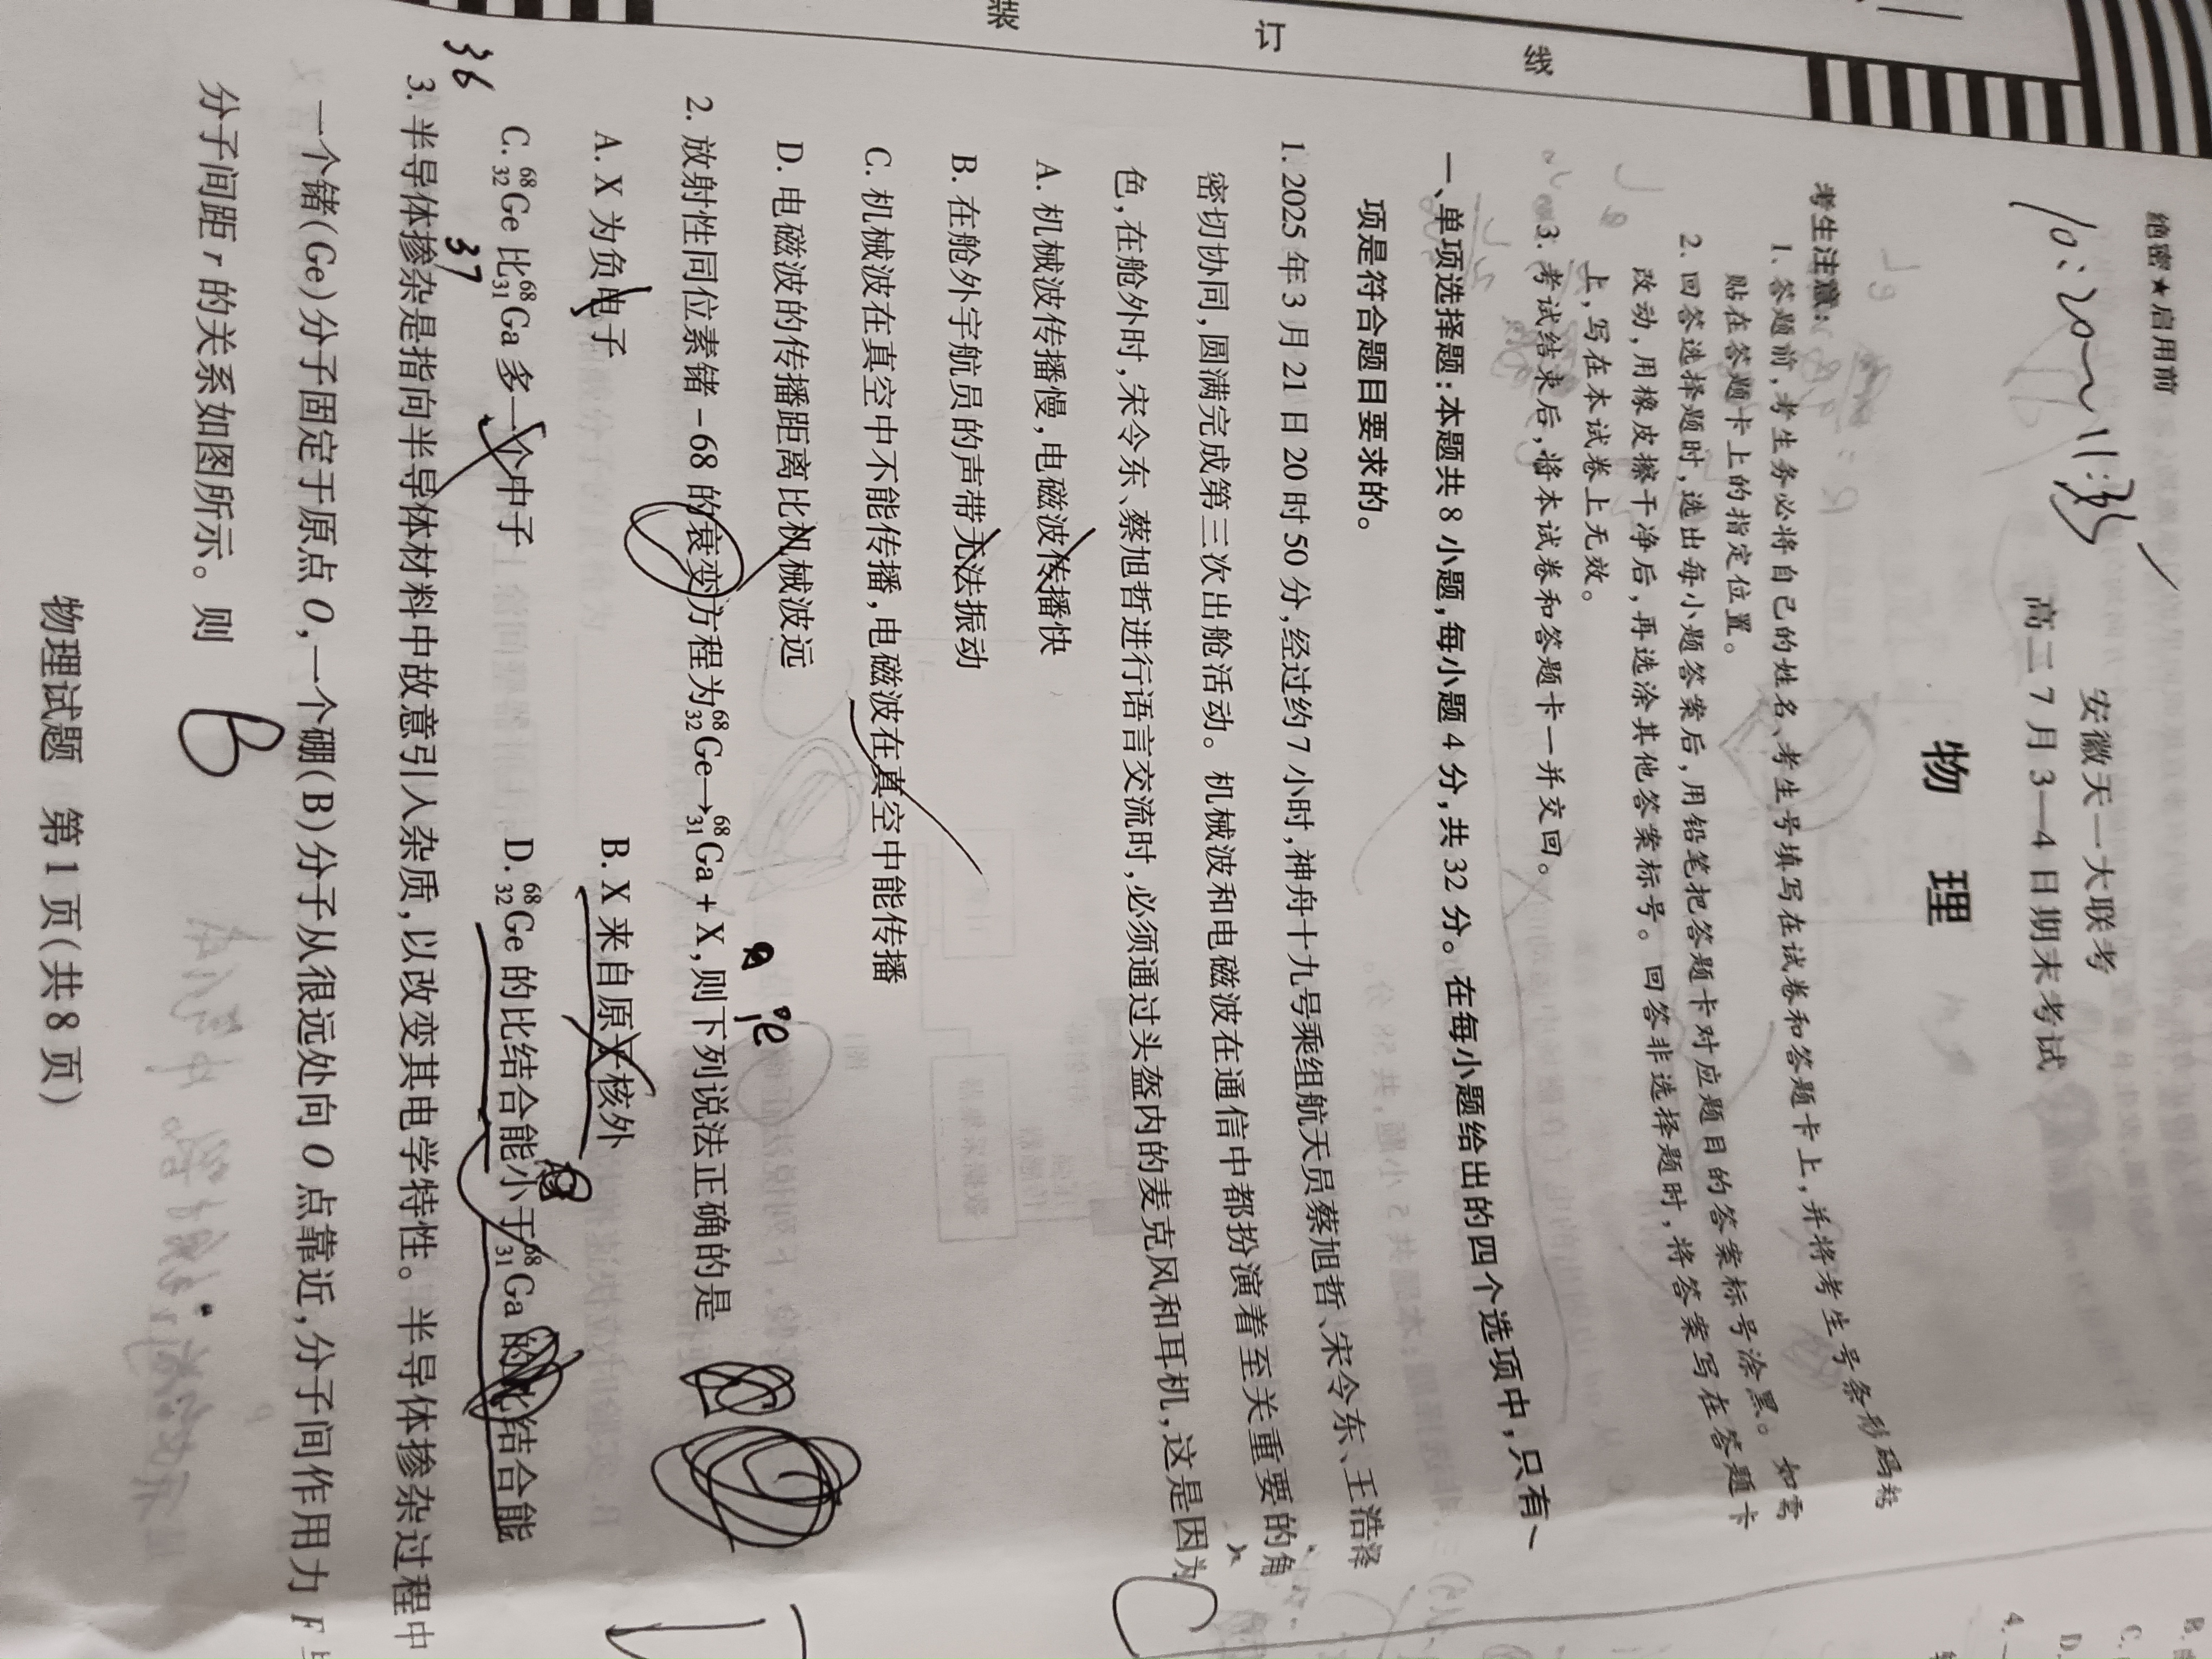 装 订 线
绝密★启用前
安徽天一大联考
高二7月3—4日期末考试
物 理
考生注意:
1. 答题前,考生务必将自己的姓名、考生号填写在试卷和答题卡上,并将考生号条形码粘
贴在答题卡上的指定位置。
2. 回答选择题时,选出每小题答案后,用铅笔把答题卡对应题目的答案标号涂黑。如需
改动,用橡皮擦干净后,再选涂其他答案标号。回答非选择题时,将答案写在答题卡
上,写在本试卷上无效。
3. 考试结束后,将本试卷和答题卡一并交回。
一、单项选择题:本题共8小题,每小题4分,共32分。在每小题给出的四个选项中,只有一
项是符合题目要求的。
1. 2025年3月21日20时50分,经过约7小时,神舟十九号乘组航天员蔡旭哲、宋令东、王浩泽
密切协同,圆满完成第三次出舱活动。机械波和电磁波在通信中都扮演着至关重要的角
色,在舱外时,宋令东、蔡旭哲进行语言交流时,必须通过头盔内的麦克风和耳机,这是因为
C
A. 机械波传播慢,电磁波传播快
B. 在舱外宇航员的声带无法振动
C. 机械波在真空中不能传播,电磁波在真空中能传播
D. 电磁波的传播距离比机械波远
2. 放射性同位素锗-68的衰变方程为⁶⁸₃₂Ge→⁶⁸₃₁Ga+X,则下列说法正确的是
A. X为负电子 B. X来自原子核外
C. ⁶⁸₃₂Ge比⁶⁸₃₁Ga多一个中子 D. ⁶⁸₃₂Ge的比结合能小于⁶⁸₃₁Ga的比结合能
36 37
3. 半导体掺杂是指向半导体材料中故意引入杂质,以改变其电学特性。半导体掺杂过程中
一个锗(Ge)分子固定于原点O,一个硼(B)分子从很远处向O点靠近,分子间作用力F与
分子间距r的关系如图所示。则 B
物理试题 第1页(共8页)
B.
C.
D.
4.